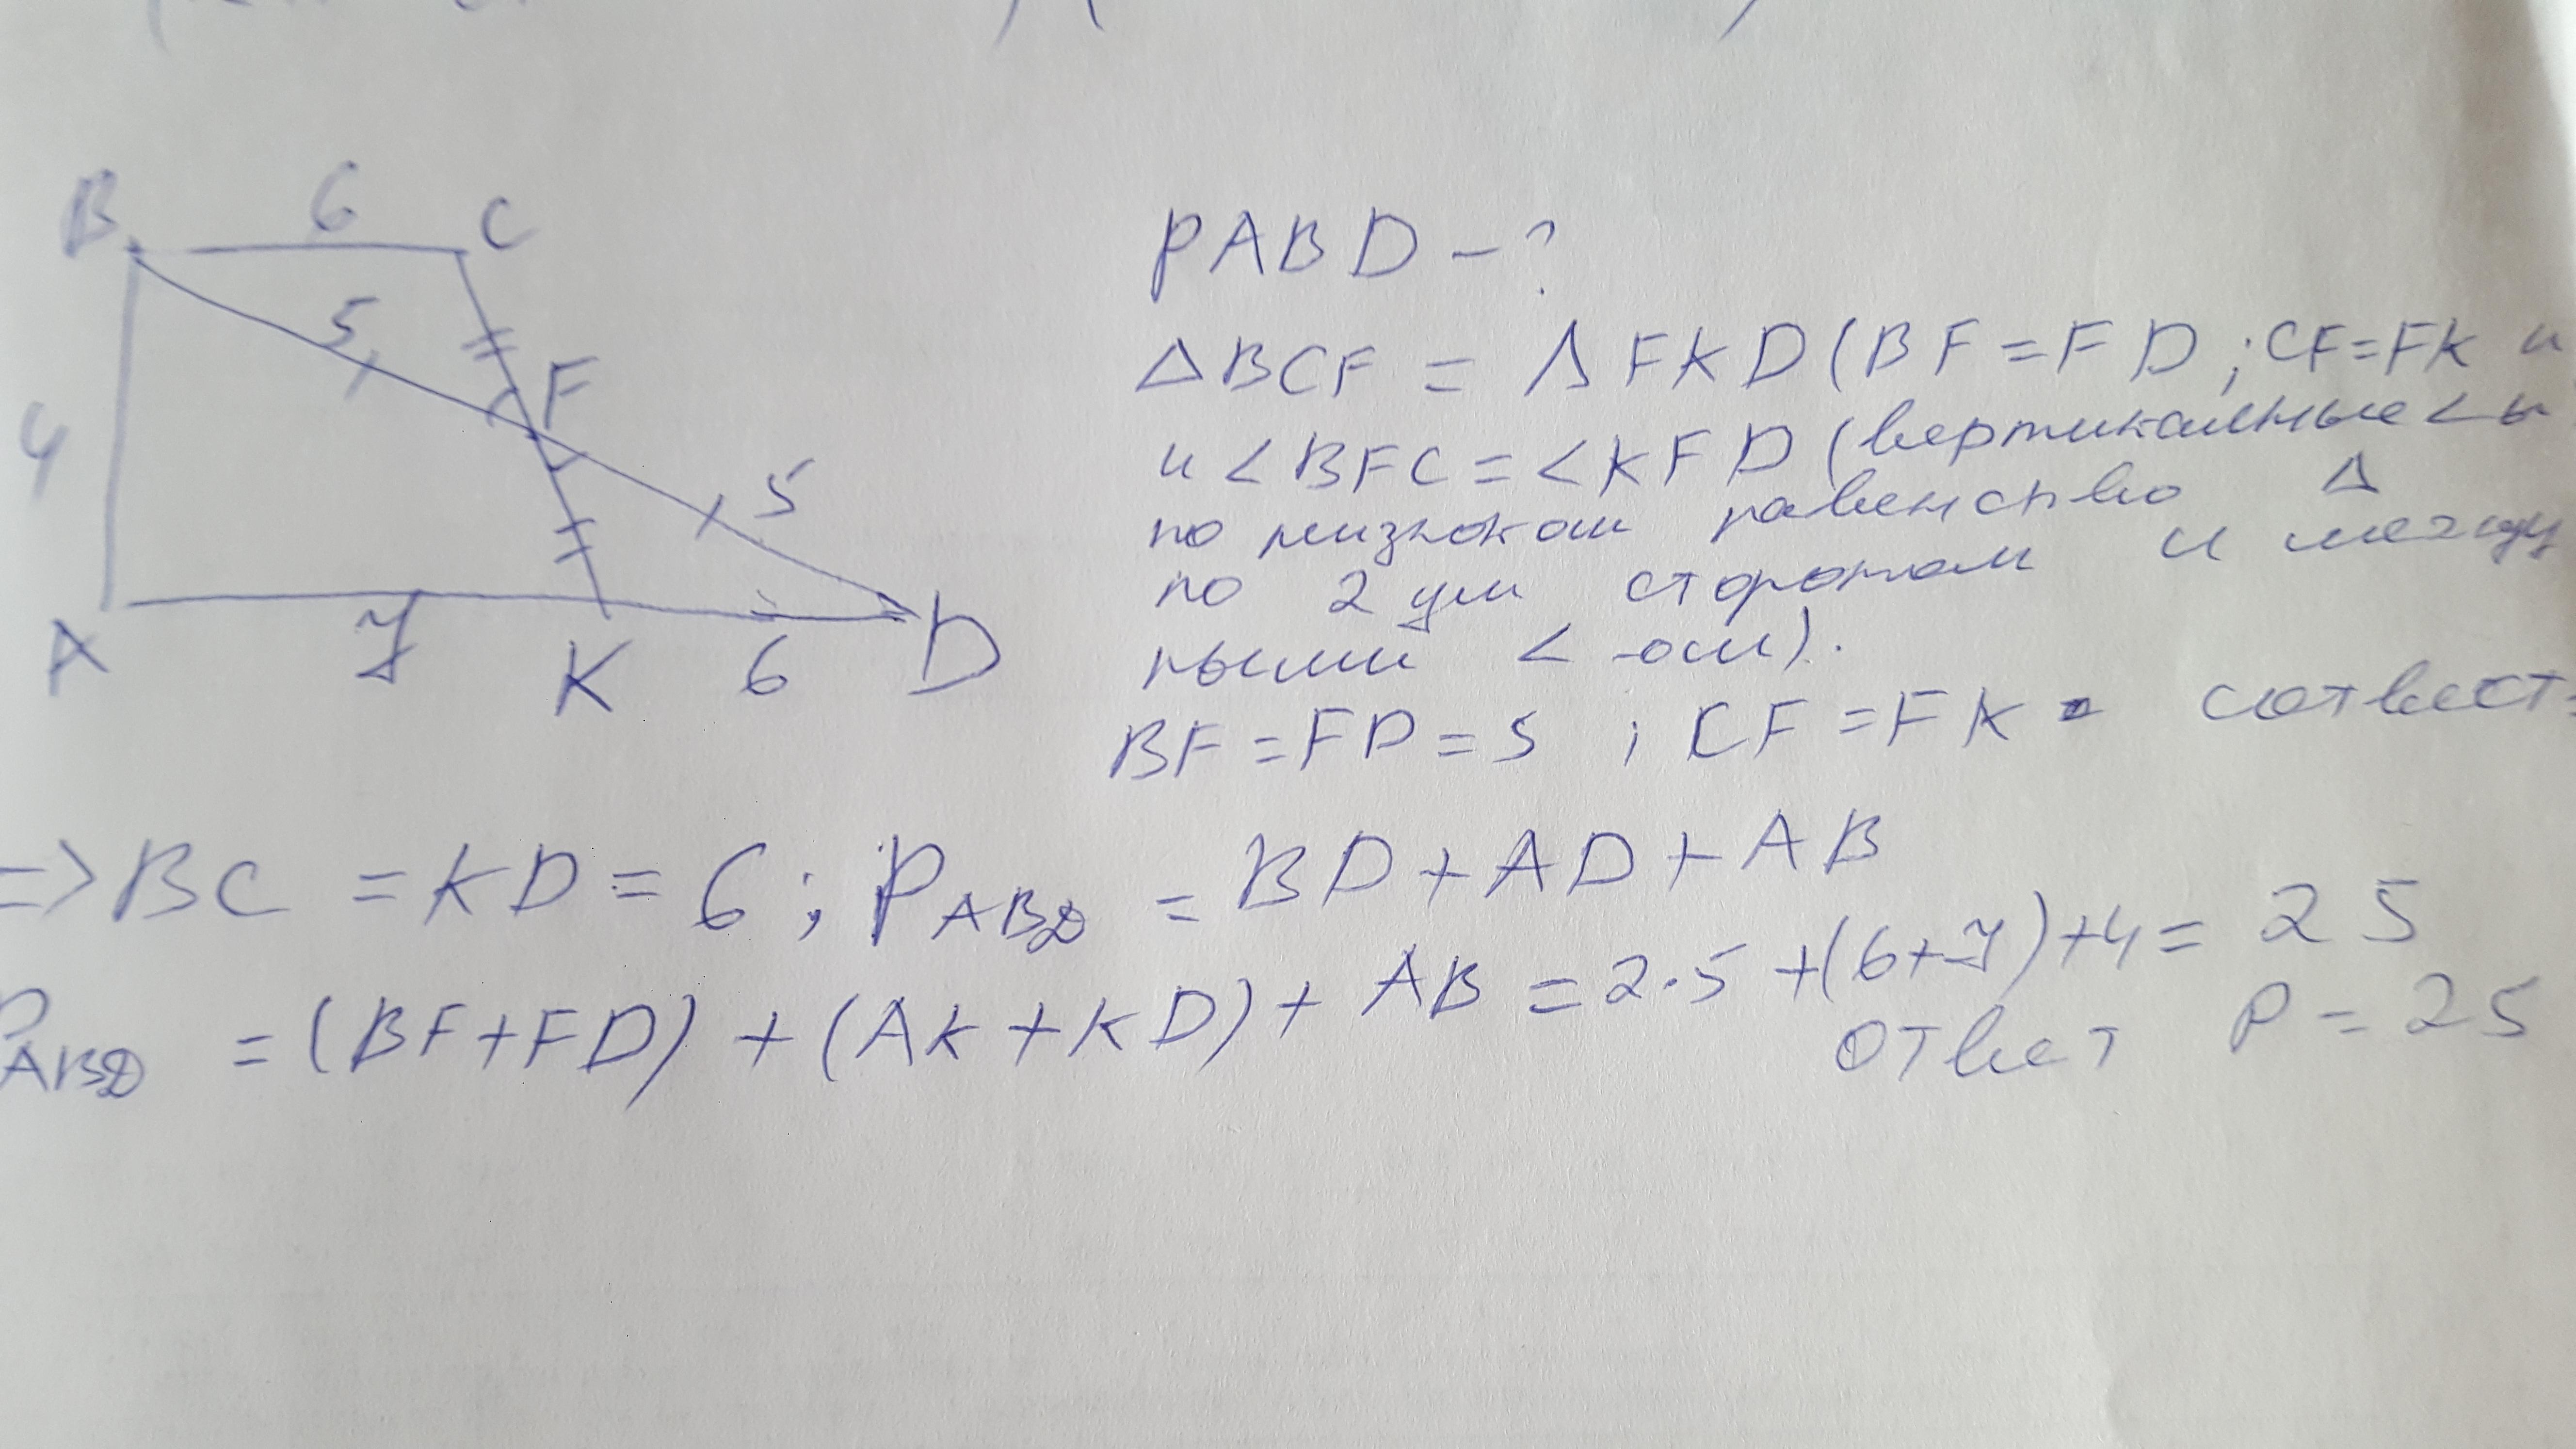 B 6 C
5
F
4
5
A 7 K 6 D
PABD - ?
Δ BCF = Δ FKD (BF = FD ; CF = FK и
и < BFC = < KFD (вертикальные < ы
по признакам равенство Δ
по 2 ум сторотам и между
ными < -ом).
BF = FD = 5 ; CF = FK - соответст
=> BC = KD = 6 ; P ABD = BD + AD + AB
P ABD = (BF + FD) + (AK + KD) + AB = 2·5 + (6+7) + 4 = 25
Ответ P = 25